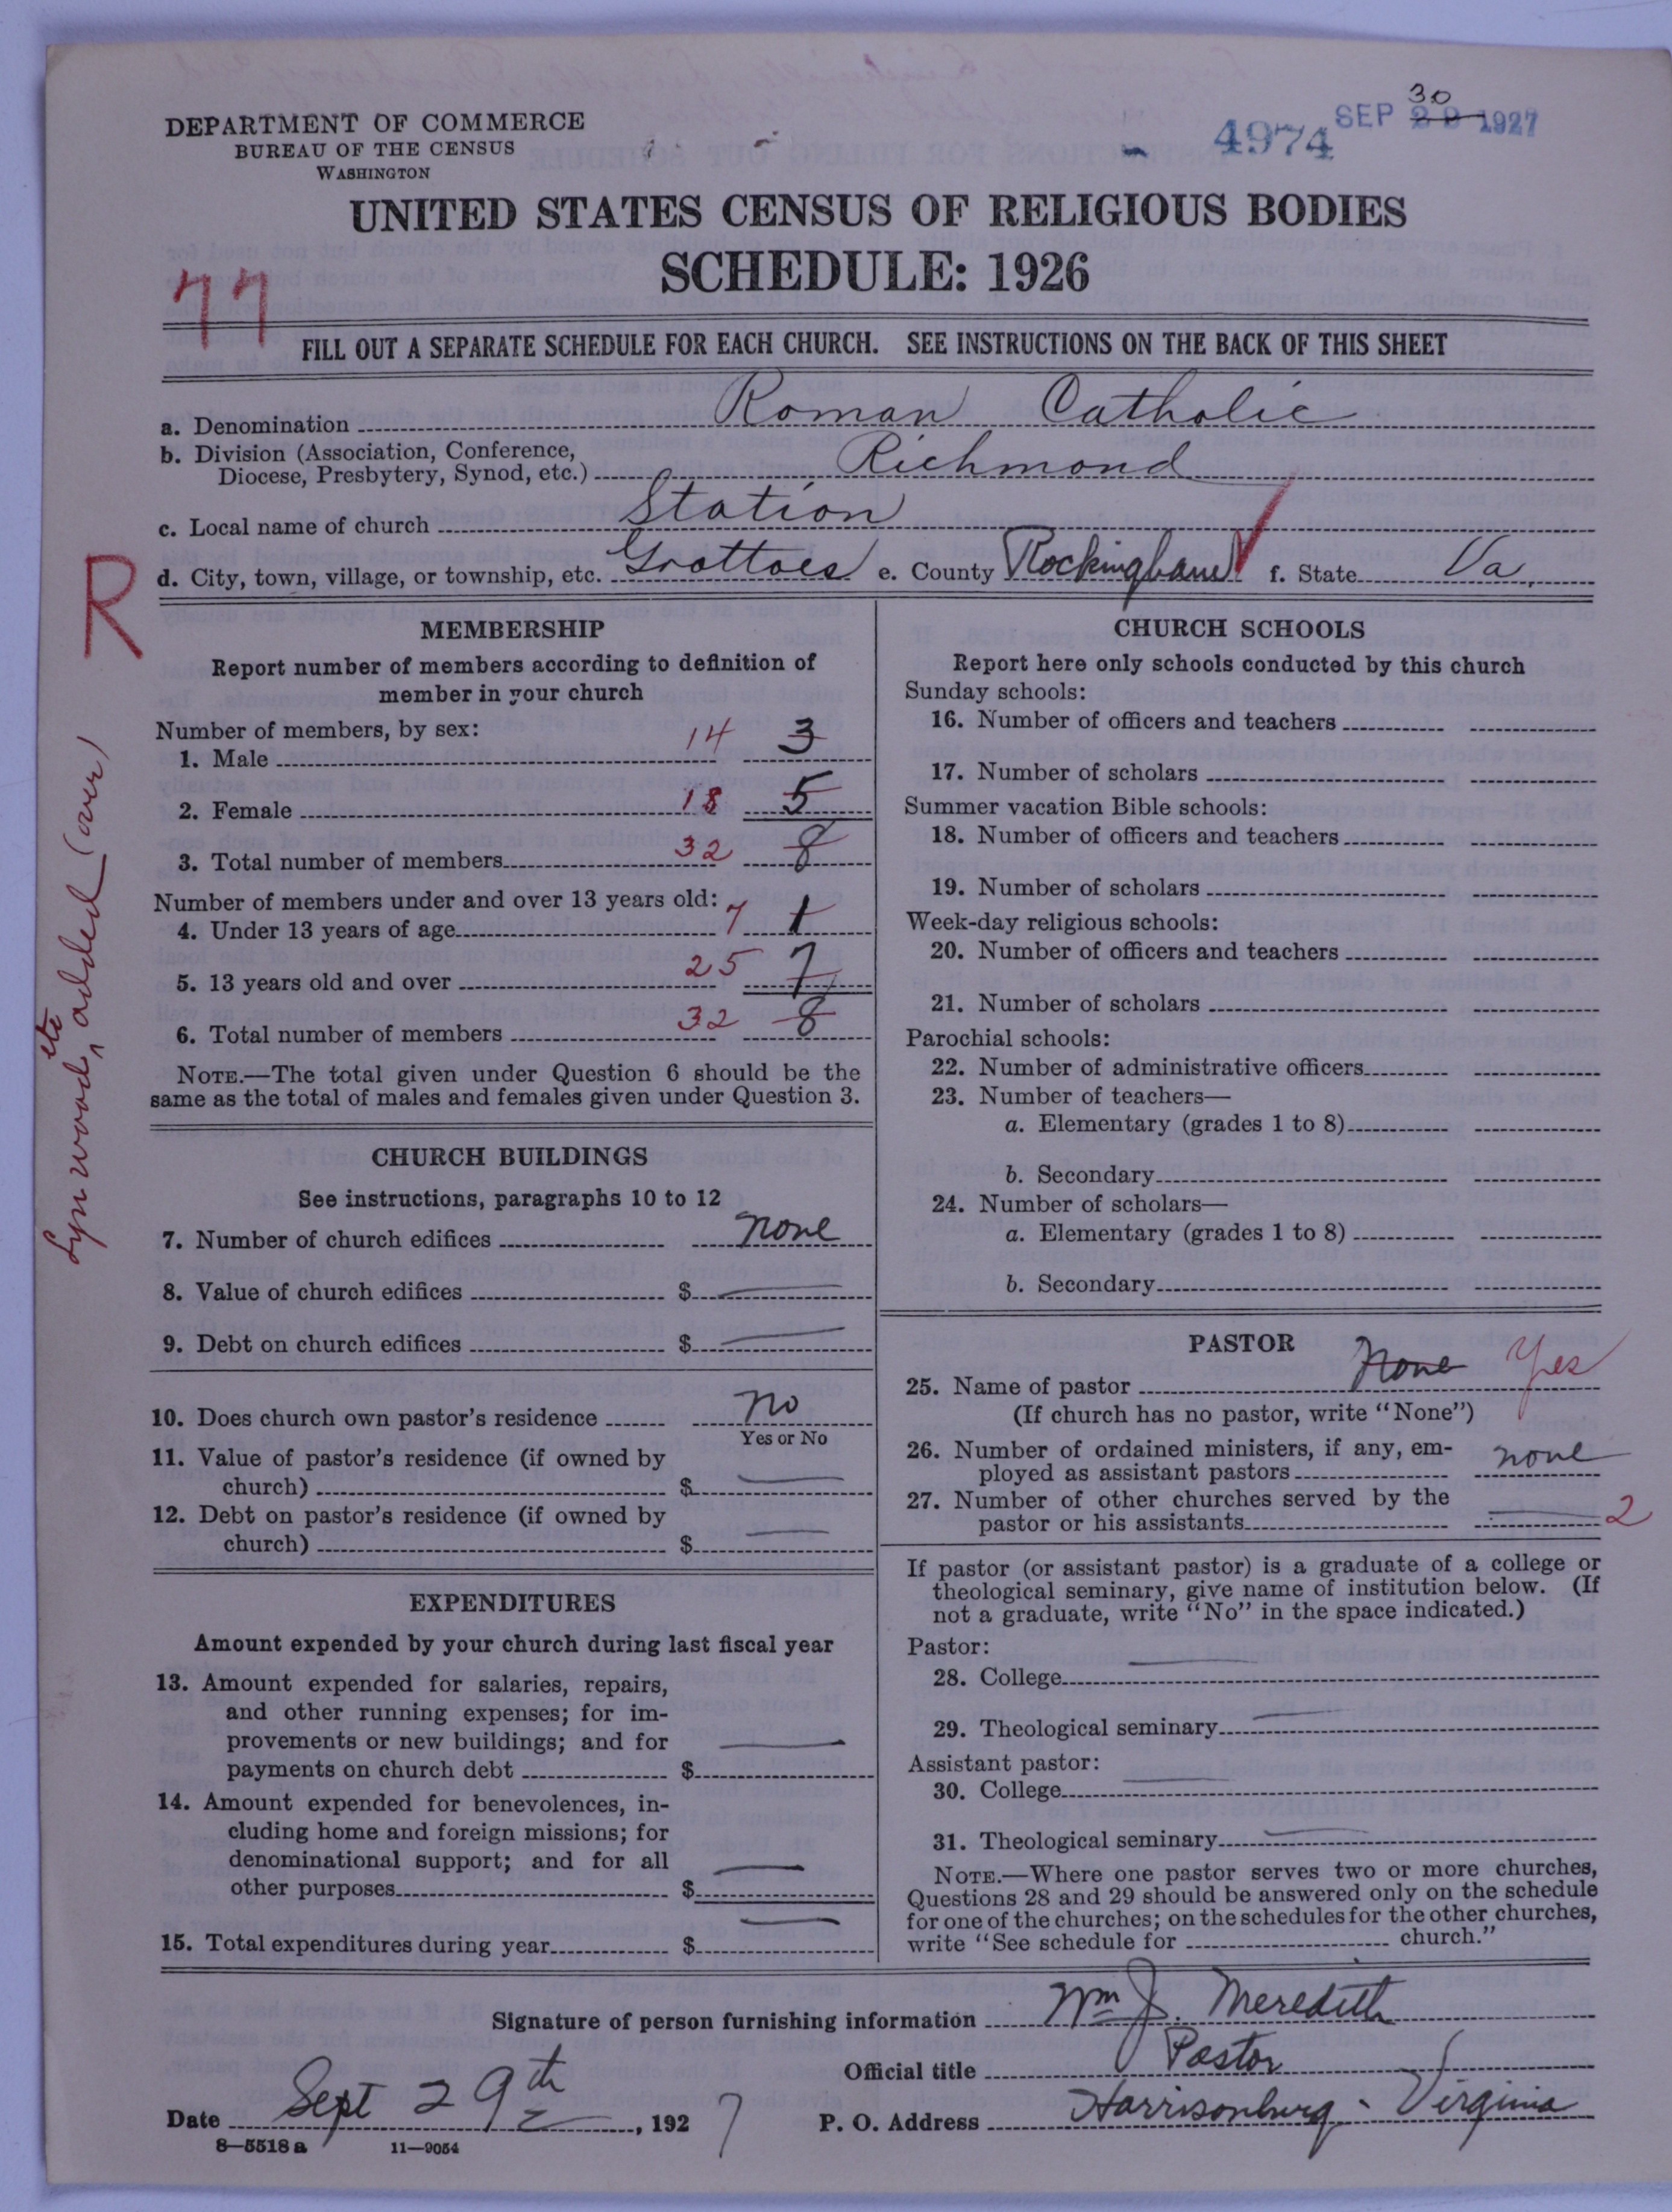 DEPARTMENT OF COMMERCE
BUREAU OF THE CENSUS
WASHINGTON
4974
30
SEP 29 1927
UNITED STATES CENSUS OF RELIGIOUS BODIES
SCHEDULE: 1926
77
FILL OUT A SEPARATE SCHEDULE FOR EACH CHURCH. SEE INSTRUCTIONS ON THE BACK OF THIS SHEET
a. Denomination Roman Catholic
b. Division (Association, Conference,
Diocese, Presbytery, Synod, etc.) Richmond
c. Local name of church Station
d. City, town, village, or township, etc. Grottoes e. County Rockingham f. State Va.
R
Lynwood etc added (over)
MEMBERSHIP
Report number of members according to definition of
member in your church
Number of members, by sex:
1. Male 14 3
2. Female 18 5
3. Total number of members 32 8
Number of members under and over 13 years old:
4. Under 13 years of age 7 1
5. 13 years old and over 25 7
6. Total number of members 32 8
NOTE.—The total given under Question 6 should be the
same as the total of males and females given under Question 3.
CHURCH BUILDINGS
See instructions, paragraphs 10 to 12
7. Number of church edifices none
8. Value of church edifices $ —
9. Debt on church edifices $ —
10. Does church own pastor's residence no
Yes or No
11. Value of pastor's residence (if owned by
church) $ —
12. Debt on pastor's residence (if owned by
church) $ —
EXPENDITURES
Amount expended by your church during last fiscal year
13. Amount expended for salaries, repairs,
and other running expenses; for im-
provements or new buildings; and for
payments on church debt $ —
14. Amount expended for benevolences, in-
cluding home and foreign missions; for
denominational support; and for all
other purposes $ —
15. Total expenditures during year $ —
CHURCH SCHOOLS
Report here only schools conducted by this church
Sunday schools:
16. Number of officers and teachers
17. Number of scholars
Summer vacation Bible schools:
18. Number of officers and teachers
19. Number of scholars
Week-day religious schools:
20. Number of officers and teachers
21. Number of scholars
Parochial schools:
22. Number of administrative officers
23. Number of teachers—
a. Elementary (grades 1 to 8)
b. Secondary
24. Number of scholars—
a. Elementary (grades 1 to 8)
b. Secondary
PASTOR
25. Name of pastor None Yes
(If church has no pastor, write "None")
26. Number of ordained ministers, if any, em-
ployed as assistant pastors none
27. Number of other churches served by the
pastor or his assistants — 2
If pastor (or assistant pastor) is a graduate of a college or
theological seminary, give name of institution below. (If
not a graduate, write "No" in the space indicated.)
Pastor:
28. College —
29. Theological seminary —
Assistant pastor:
30. College —
31. Theological seminary —
NOTE.—Where one pastor serves two or more churches,
Questions 28 and 29 should be answered only on the schedule
for one of the churches; on the schedules for the other churches,
write "See schedule for church."
Signature of person furnishing information Wm J. Meredith
Official title Pastor
Date Sept 29th, 1927 P. O. Address Harrisonburg - Virginia
8—5518 a 11—9054